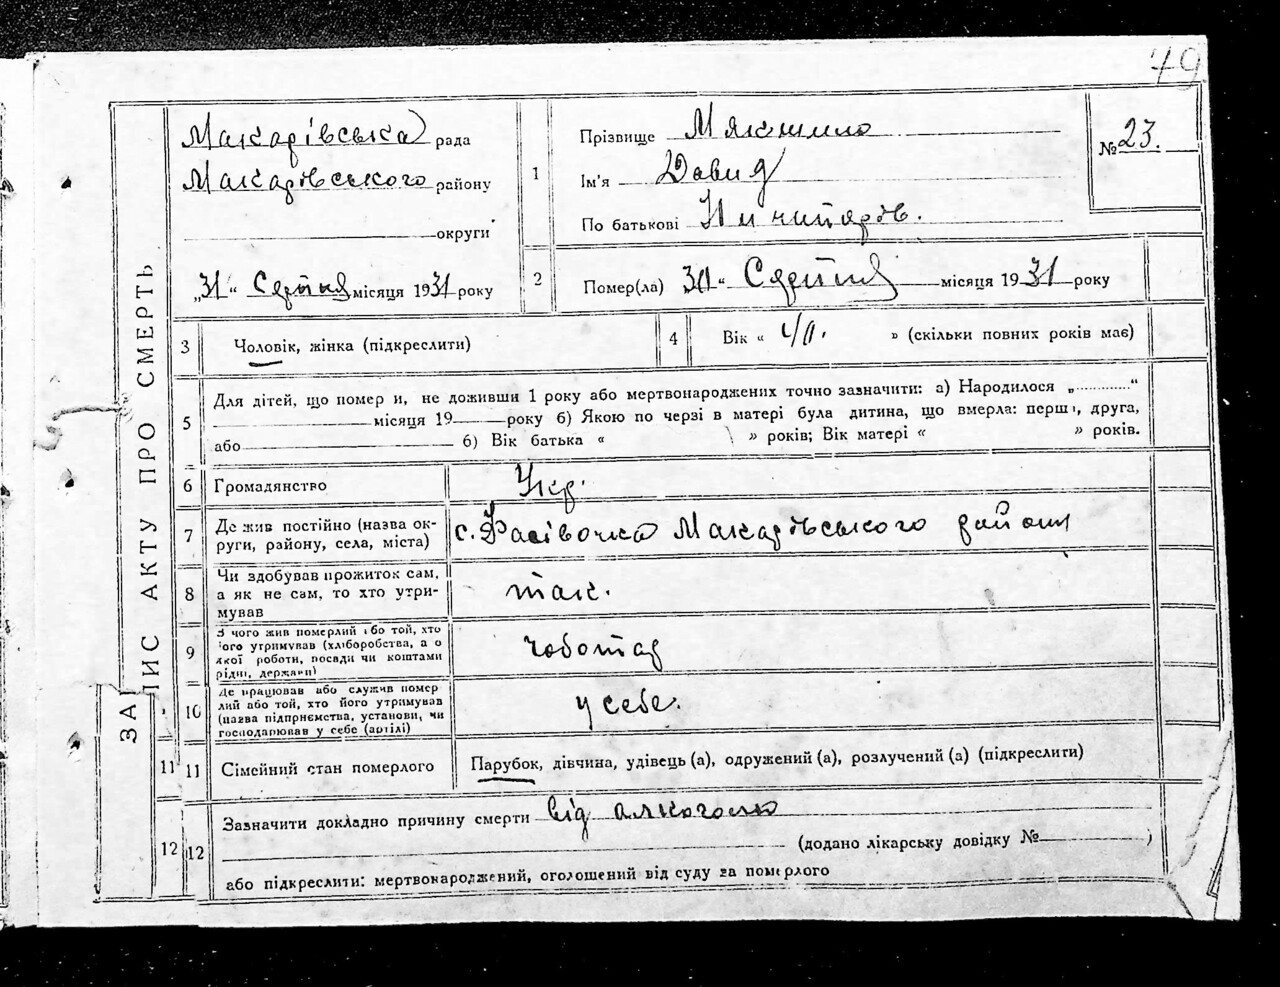 79
ЗАПИС АКТУ ПРО СМЕРТЬ
Макарівська рада
Макарівського району
округи
„31“ Серпня місяця 1931 року
1
Прізвище
Ім'я Давид
По батькові Ничипорів.
№ 23.
2
Помер(ла) 30 “ Серпня місяця 1931 року
3
Чоловік, жінка (підкреслити)
4
Вік « » (скільки повних років має)
5
Для дітей, що помер и, не доживши 1 року або мертвонароджених точно зазначити: а) Народилося „ “
місяця 19 року б) Якою по черзі в матері була дитина, що вмерла: перша, друга,
або б) Вік батька « » років; Вік матері « » років.
6
Громадянство
Укр.
7
Де жив постійно (назва ок-
руги, району, села, міста)
с. Фасівочка Макарівського району
8
Чи здобував прожиток сам,
а як не сам, то хто утри-
мував
так.
9
З чого жив померлий або той, хто
його утримував (хліборобства, а о
якої роботи, посади чи коштами
рідні, держави)
чоботар
10
Де працював або служив помер
лий або той, хто його утримував
(назва підприємства, установи, чи
господарював у себе (артілі)
у себе.
11 11
Сімейний стан померлого
Парубок, дівчина, удівець (а), одружений (а), розлучений (а) (підкреслити)
12 12
Зазначити докладно причину смерти від алкоголю
(додано лікарську довідку № )
або підкреслити: мертвонароджений, оголошений від суду за померлого